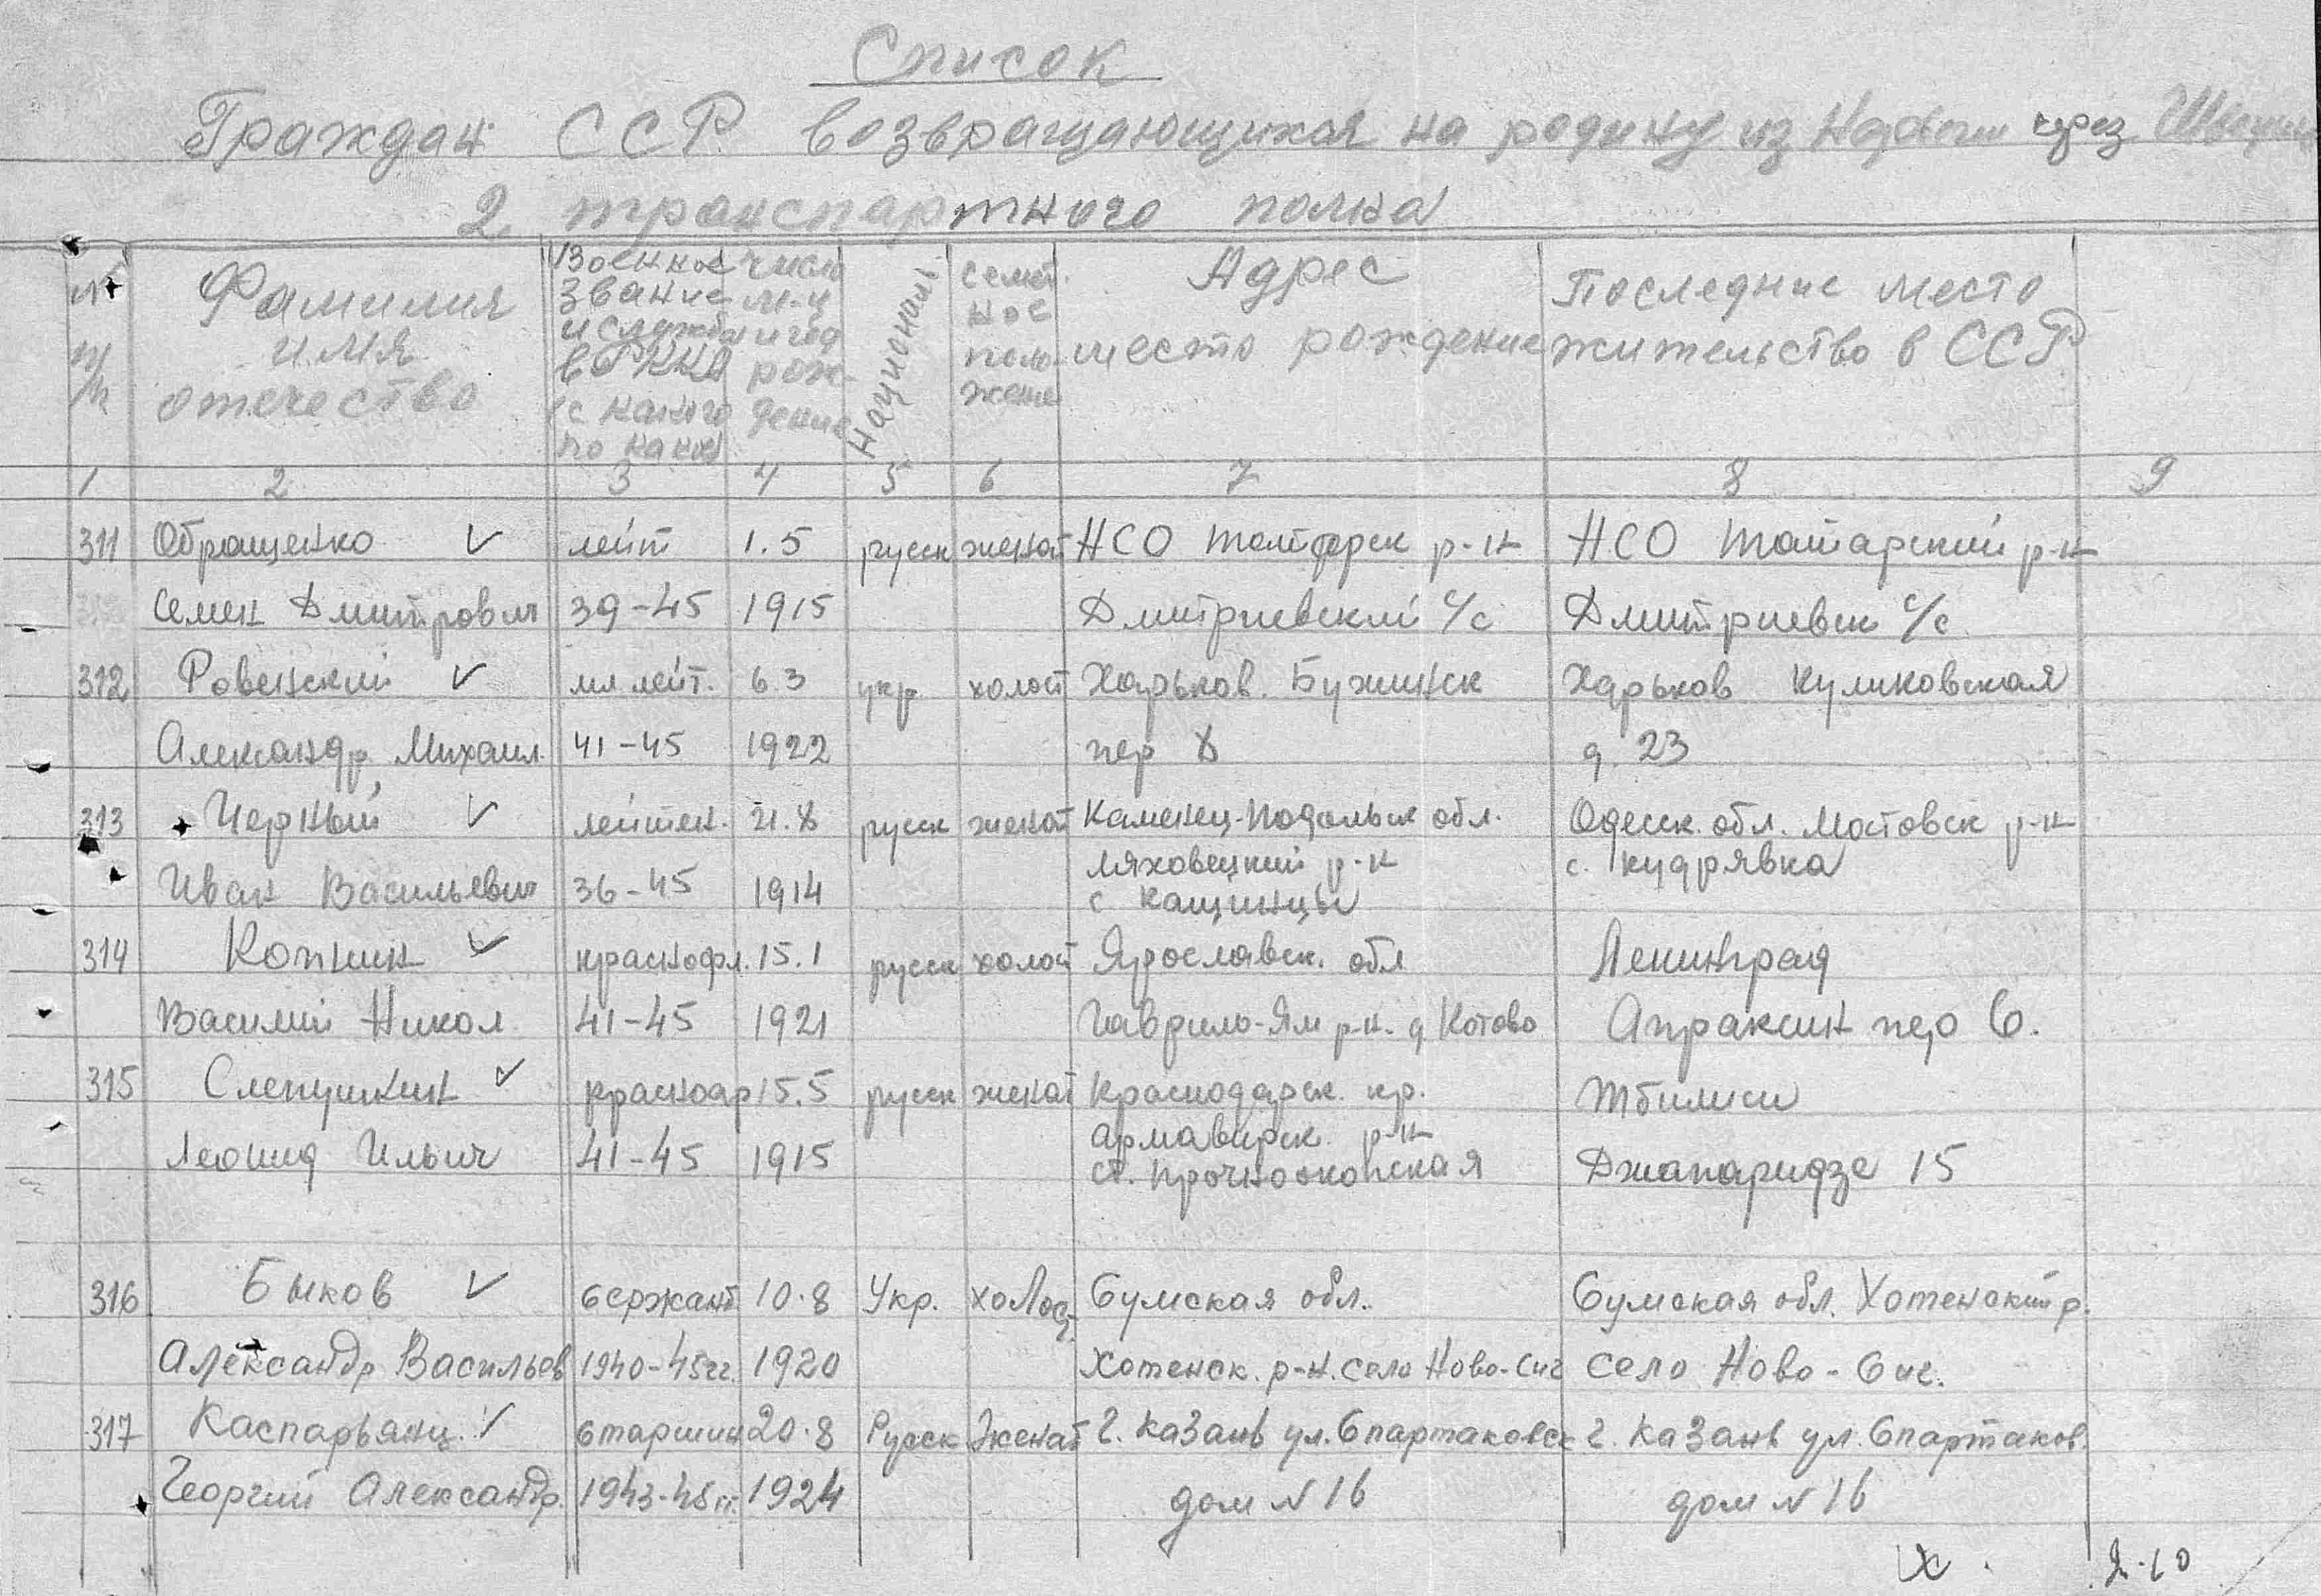 Список
Граждан ССР. возвращающихся на родину из Норвегии через Швецию
2 транспартного полка
№ п/п
Фамилия имя отечество
Военное звание и служба в РККА (с какого по какой
число м-ц и год рождение
Национональ
семейное положение
Адрес место рождение
Последние место жительство в ССР
1 2 3 4 5 6 7 8 9
311 Обращенко лейт 1.5 русск женат НСО Татарск р-н НСО Татарский р-н
Семен Дмитрович 39-45 1915 Дмитриевский с/с Дмитриевск с/с
312 Ровенский мл лейт. 6.3 укр. холост Харьков. Бужинск Харьков Куликовская
Александр Михаил. 41-45 1922 пер 8 д. 23
313 Черный лейтен. 21.8 русск женат Каменец-Подольск обл. Одесск. обл. Мостовск р-н
Ляховецкий р-н с. Кудрявка
Иван Васильевич 36-45 1914 с Кащинцы
314 Копнин краснофл. 15.1 русск холост Ярославск. обл Ленинград
Василий Никол. 41-45 1921 Гаврило-Ям р-н. д Котово Апраксин пер 6.
315 Слепушкин красноар 15.5 русск женат Краснодарск. кр. Тбилиси
Армавирск. р-н
Леонид Ильич 41-45 1915 ст. Прочноокопская Джапаридзе 15
316 Быков Сержант 10.8 Укр. холост Сумская обл. Сумская обл. Хотенский р.
Александр Васильев 1940-45гг. 1920 Хотенск. р-н. село Ново-Сич село Ново-Сич.
317 Каспарьянц. Старшин 20.8 Русск Женат г. Казань ул. Спартаковск г. Казань ул. Спартаков.
Георгий Александр. 1943-45гг. 1924 дом N 16 дом N 16
2-10